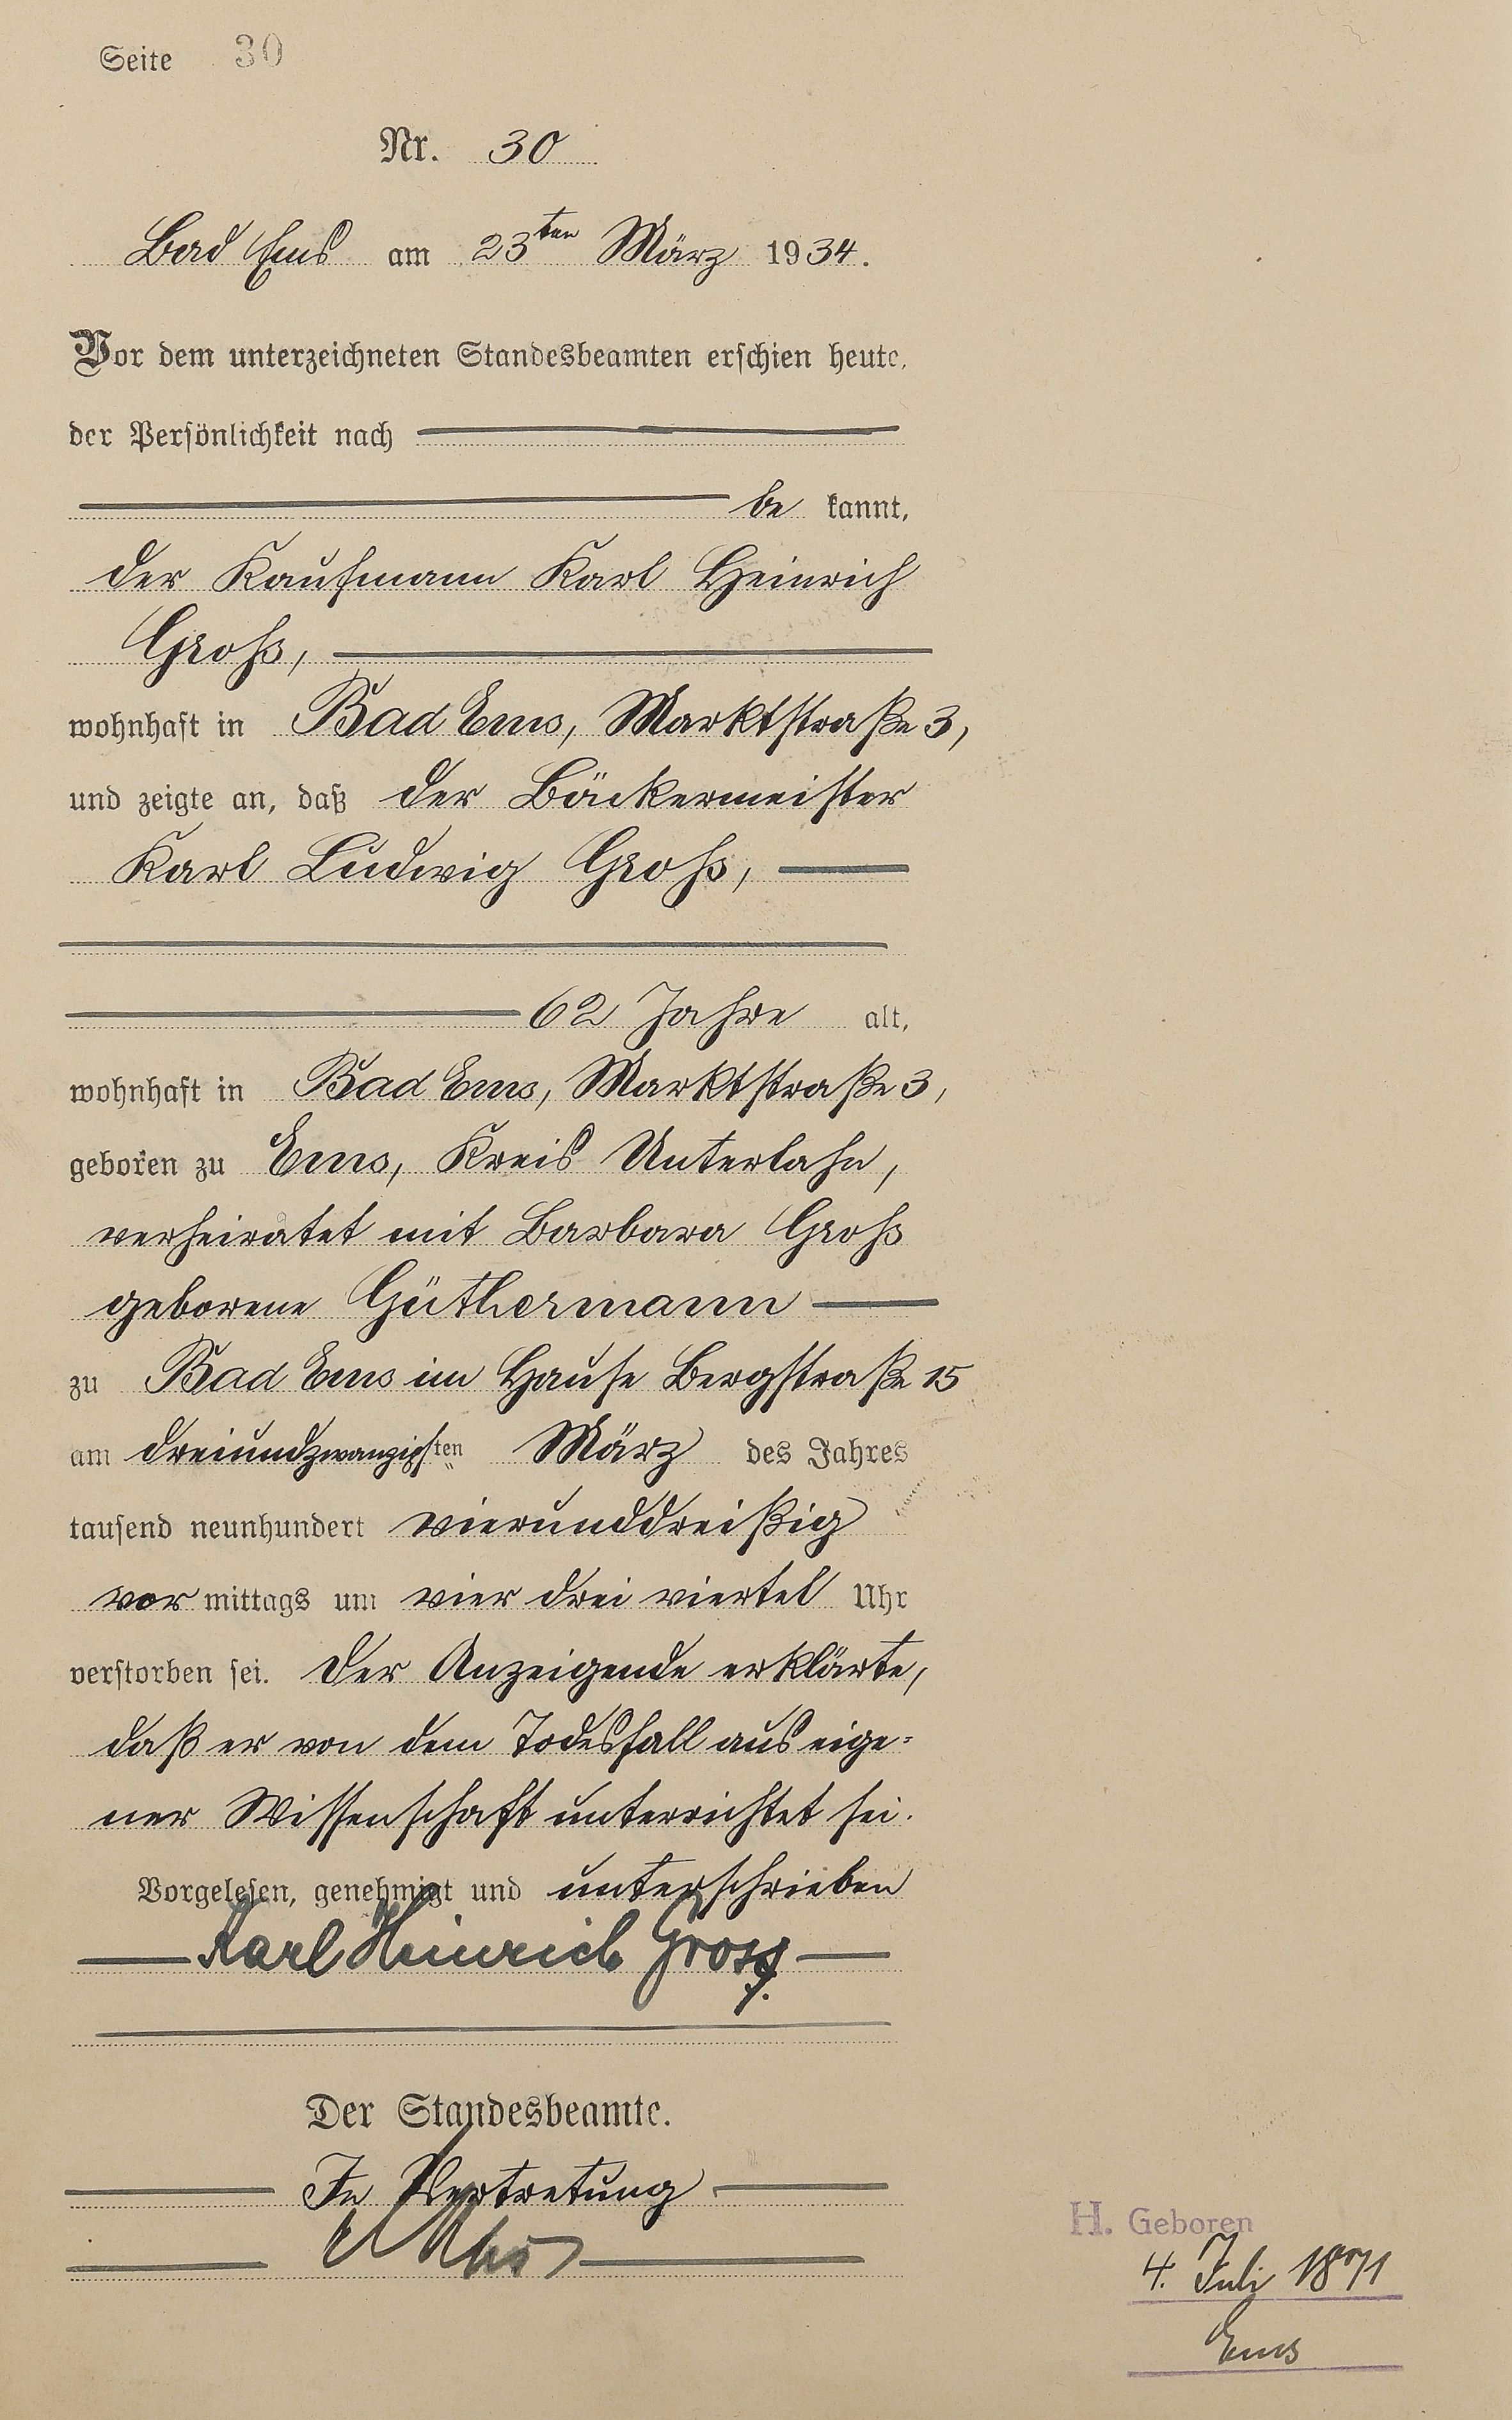 Seite 30
Nr. 30
Bad Ems am 23ten März 1934.
Vor dem unterzeichneten Standesbeamten erschien heute,
der Persönlichkeit nach
be kannt,
der Kaufmann Karl Heinrich
Groß,
wohnhaft in Bad Ems, Marktstraße 3,
und zeigte an, daß der Bäckermeister
Karl Ludwig Groß,
62 Jahre alt,
wohnhaft in Bad Ems, Marktstraße 3,
geboren zu Ems, Kreis Unterlahn,
verheiratet mit Barbara Groß
geborene Güthermann
zu Bad Ems im Hause Bergstraße 15
am dreiundzwanzigsten März des Jahres
tausend neunhundert vierunddreißig
vor mittags um vier drei viertel Uhr
verstorben sei. Der Anzeigende erklärte,
daß er von dem Todesfall aus eige=
ner Wissenschaft unterrichtet sei.
Vorgelesen, genehmigt und unterschrieben
Karl Heinrich Gross.
Der Standesbeamte.
In Vertretung
H. Geboren
4. Juli 1871
Ems